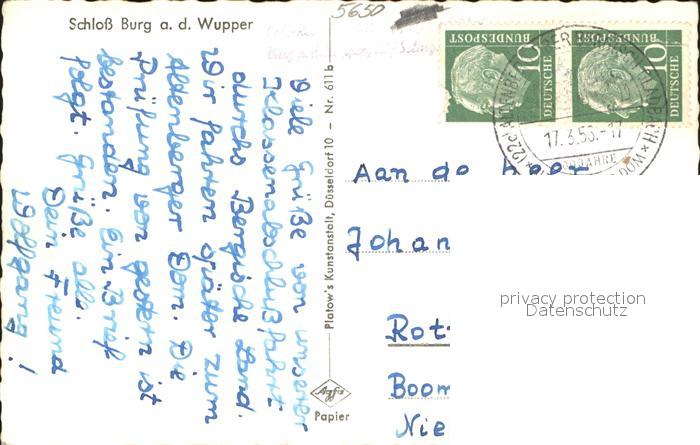 Schloß Burg a. d. Wupper
5650
Viele Grüße von unserer
Klassenabschlußfahrt
durchs Bergische Land.
Wir fahren später zum
Altenberger Dom. Die
Prüfung von gestern ist
bestanden. Ein Brief
folgt. Grüße alle.
Dein Freund
Wolfgang!
Platow's Kunstanstalt, Düsseldorf 10 – Nr. 611 b
Agfa
Papier
DEUTSCHE
BUNDESPOST
10
DEUTSCHE
BUNDESPOST
10
17.3.56.-17
Aan de Heer
Johan
Rot
Boom
Nie
privacy protection
Datenschutz